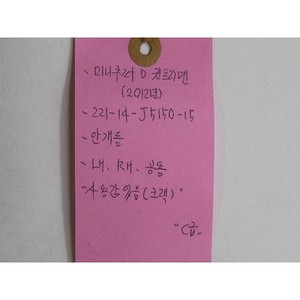 - 미니쿠퍼 D 컨트리맨
(2012년)
- 221-14-J5150-15
- 안개등
- LH, RH, 공용
"사용감 있음(크랙)"
"C급"